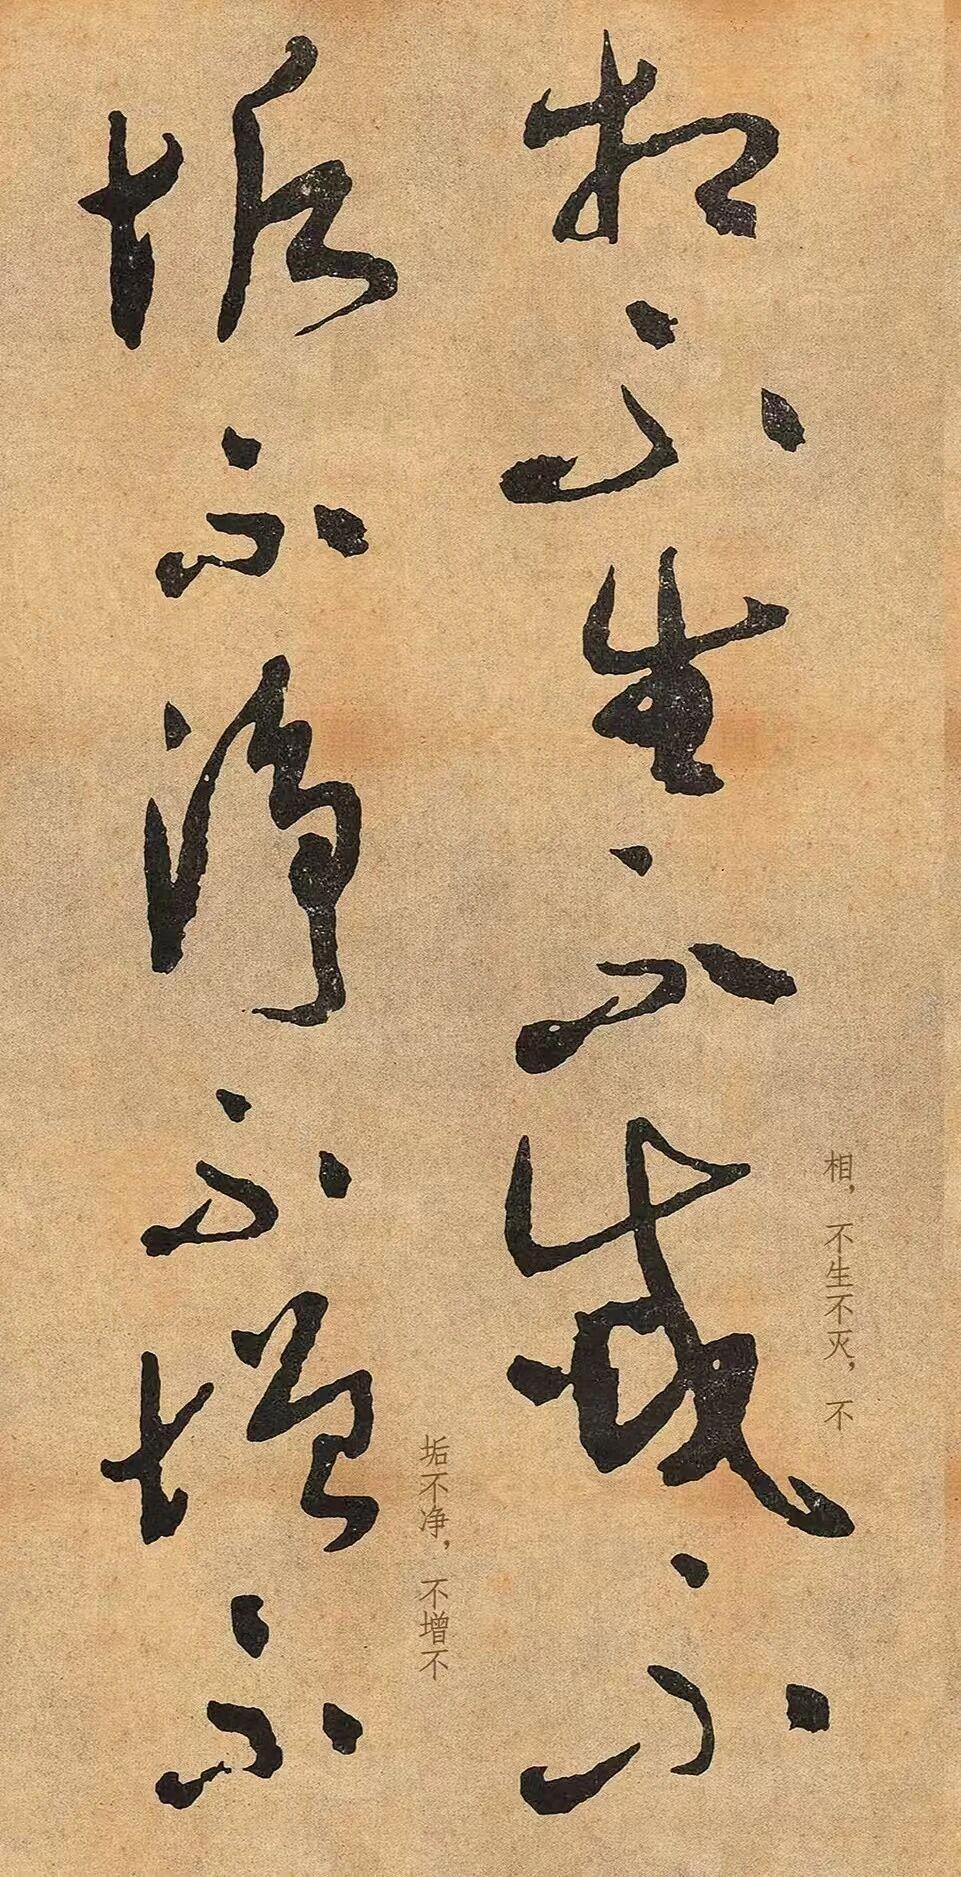 相不生不滅不
相，不生不灭，不
垢不淨不增不
垢不净，不增不